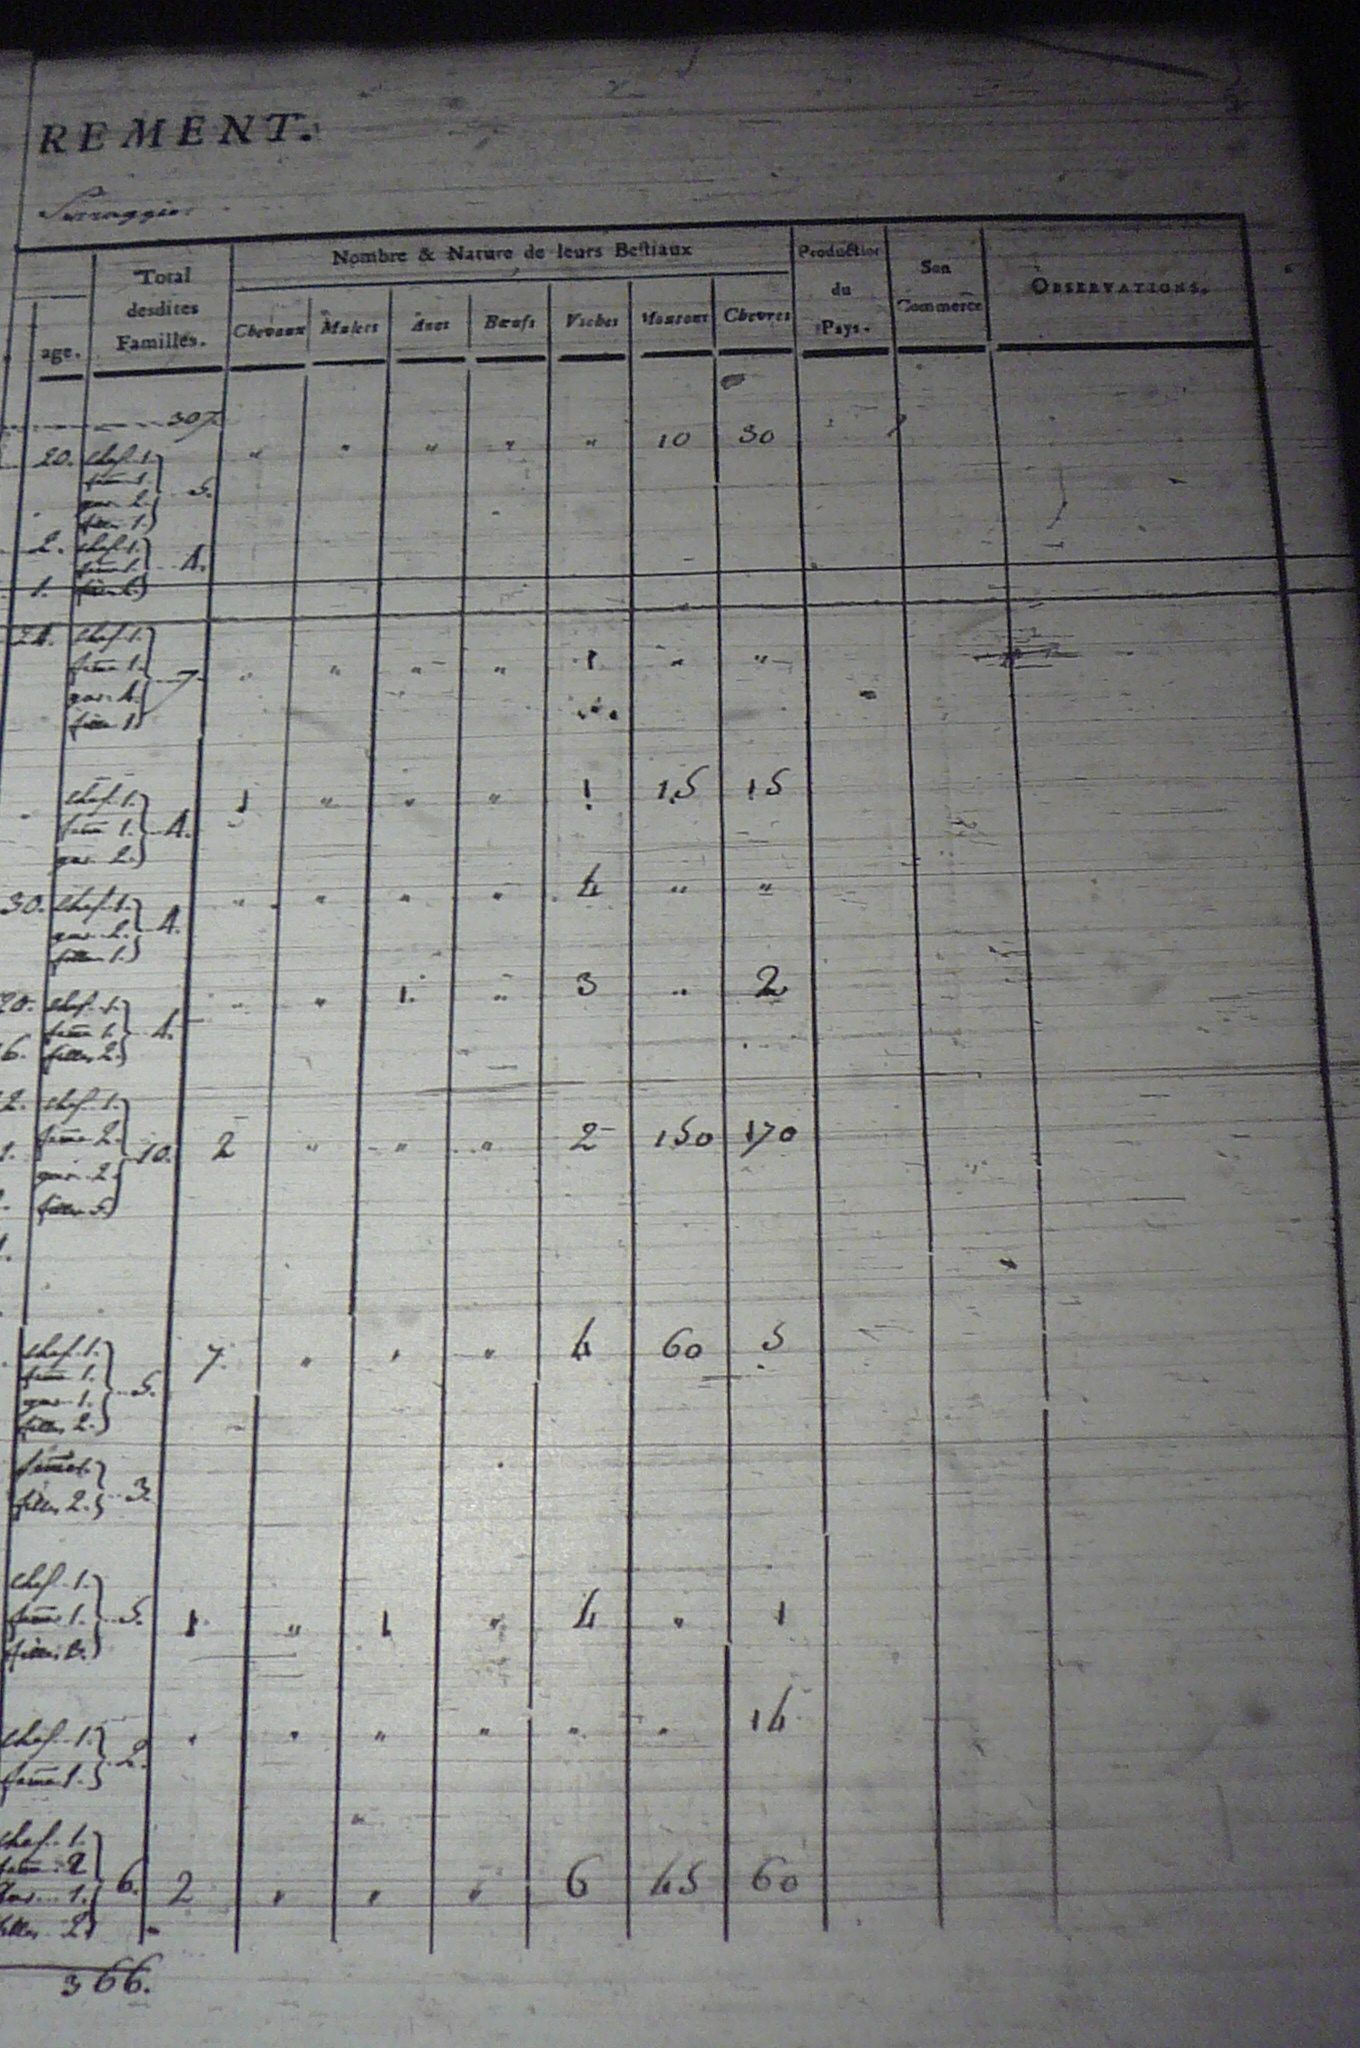 REMENT.
Serraggio.
age. Total desdites Familles. Nombre & Nature de leurs Bestiaux Production du Pays. Son Commerce OBSERVATIONS.
Chevaux Mulets Anes Bœufs Vaches Moutons Chevres
307.
20. chef. 1. " " " " " 10 30
fem̄e 1. 5.
gar. 2.
fille 1.
2. chef. 1.
fem̄e 1. 4.
1. filles 2.
24. chef. 1.
fem̄e 1. 7 " " " " 1 " "
gar. 4.
fille 1.
chef. 1. 1 " " " 1 15 15
fem̄e 1. 4.
gar. 2.
30. chef. 1. " " " " 4 " "
gar. 2. 4.
fille 1.
20. chef. 1. " " 1. " 3 " 2
fem̄e 1. 4.
6. filles 2.
2. chef. 1.
fem̄e 2. 10. 2 " " " 2 150 170
1. gar. 2
filles 5.
chef. 1. 7. " " " 4 60 5
fem̄e 1.
gar. 1. 5.
filles 2.
fem̄e 1.
filles 2. 3.
chef. 1.
fem̄e 1. 5. 1. " 1 " 4 " 1
filles 3.
chef. 1. 2. " " " " " " 14
fem̄e 1.
chef. 1.
fem̄e 2
gar. 1. 6. 2 " " " 6 45 60
filles 2.
366.